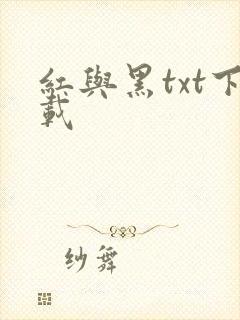 紅與黑txt下
載
纱舞